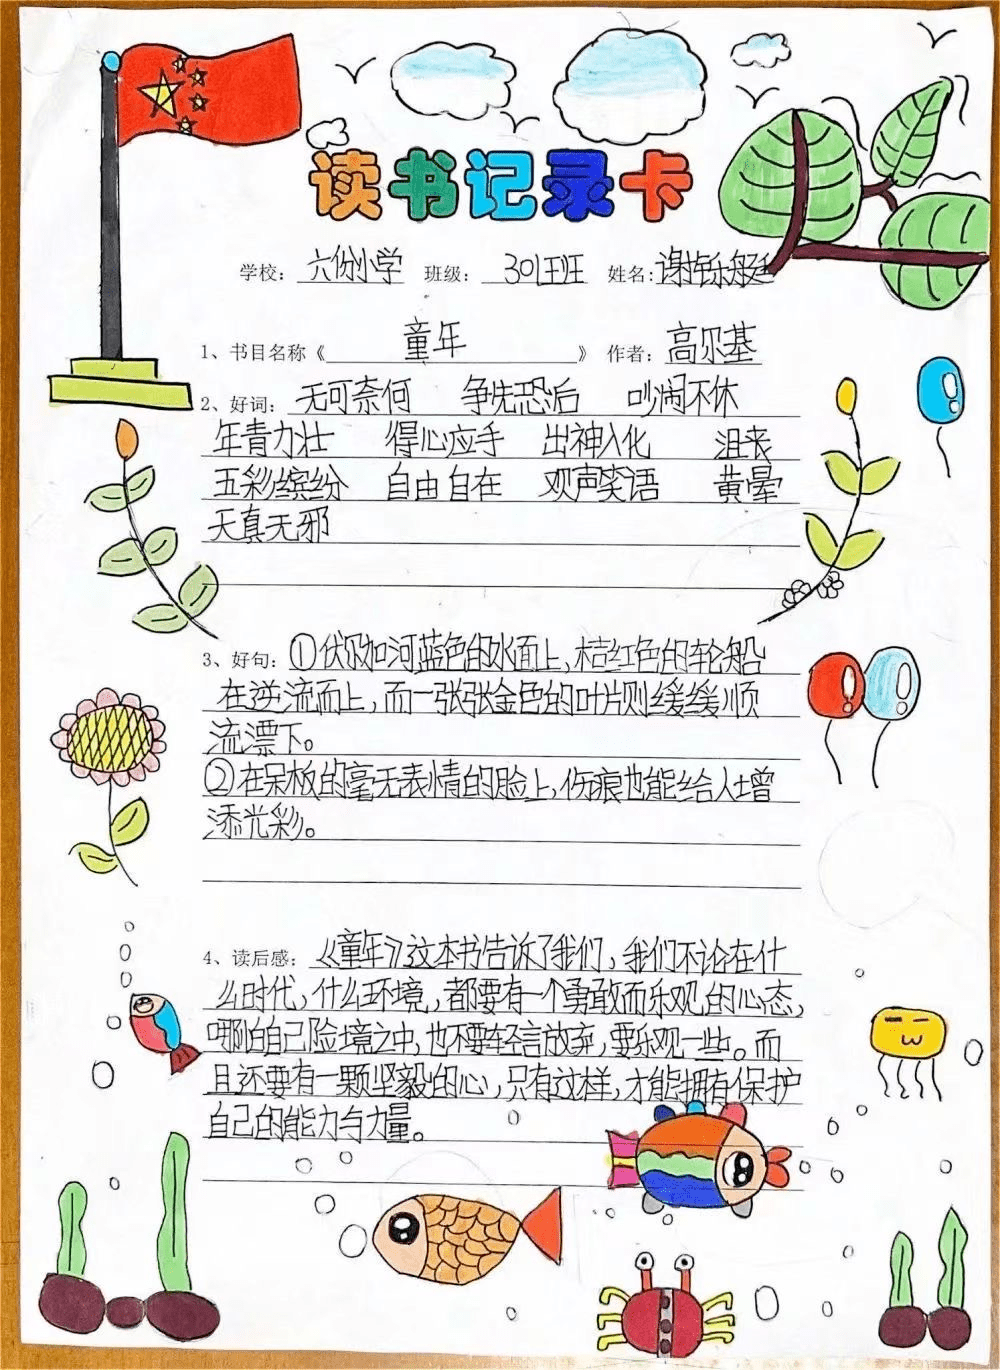 读书记录卡
学校： 六份小学 班级： 301班 姓名：谢
1、书目名称《 童年 》 作者：高尔基
2、好词： 无可奈何 争先恐后 吵闹不休
年青力壮 得心应手 出神入化 沮丧
五彩缤纷 自由自在 欢声笑语 黄晕
天真无邪
3、好句：①伏尔加河蓝色的水面上，桔红色的轮船
在逆流而上，而一张张金色的叶片则缓缓顺
流漂下。
②在呆板的毫无表情的脸上，伤痕也能给人增
添光彩。
4、读后感： 《童年》这本书告诉了我们，我们不论在什
么时代，什么环境，都要有一个勇敢而乐观的心态，
哪怕自己险境之中，也不要轻言放弃，要乐观一些。而
且还要有一颗坚毅的心，只有这样，才能拥有保护
自己的能力与力量。